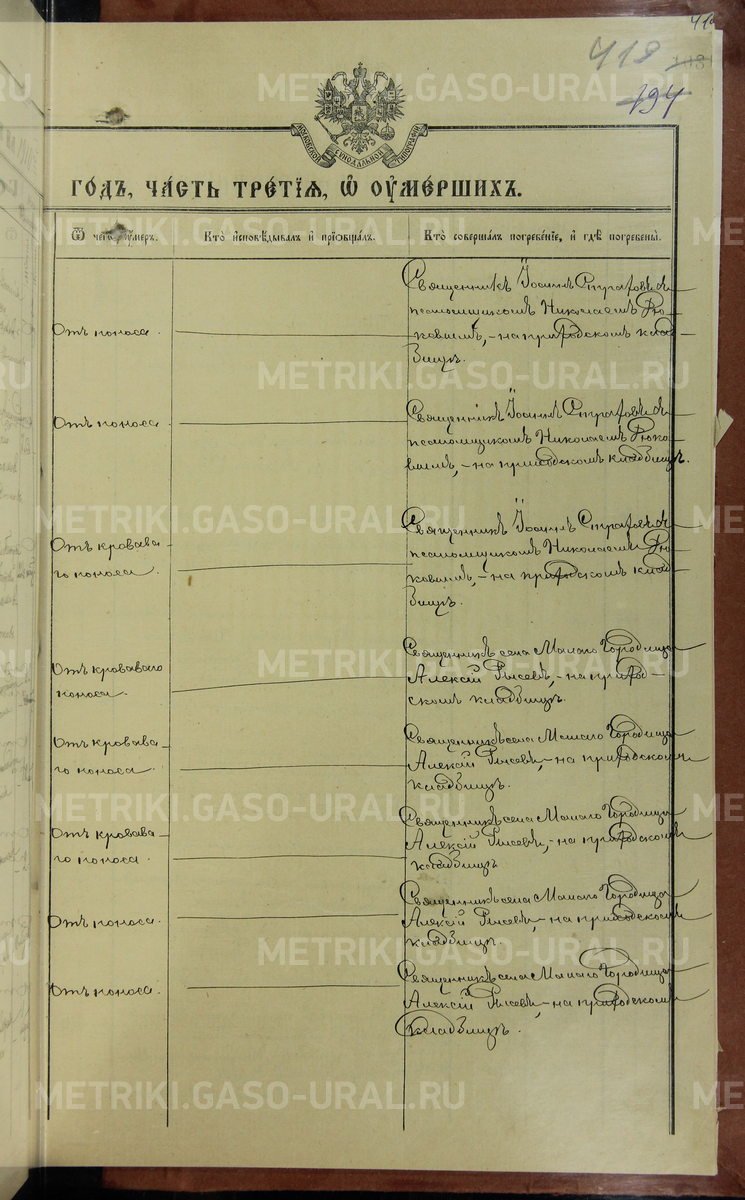 418
194
МОСКОВСКОЙ СѴНОДАЛЬНОЙ ТИПОГРАФІИ
ГО́ДЪ, ЧА́СТЬ ТРЕ́ТІѦ, Ѽ ОУ҆МЕ́РШИХЪ.
Ѿ чегѡ̀ оу҆́меръ.
Кто̀ и҆сповѣ́дывалъ и҆ прїѡбща́лъ.
Кто̀ соверша́лъ погребе́нїе, и҆ гдѣ̀ погребены̀.
Отъ поноса.
Священникъ Іоаннъ съ
псаломщикомъ Николаемъ
на приходскомъ клад-
бищѣ.
Отъ поноса.
Священникъ Іоаннъ съ
псаломщикомъ Николаемъ
на приходскомъ кладбищѣ.
Отъ кровава-
го поноса.
Священникъ Іоаннъ съ
псаломщикомъ Николаемъ
на приходскомъ клад-
бищѣ.
Отъ кроваваго
поноса.
Священникъ села Малаго Городища
Алексій – на приход-
скомъ кладбищѣ.
Отъ кровава-
го поноса.
Священникъ села Малаго Городища
Алексій – на приходскомъ
кладбищѣ.
Отъ кровава-
го поноса.
Священникъ села Малаго Городища
Алексій – на приходскомъ
кладбищѣ
Отъ поноса.
Священникъ села Малаго Городища
Алексій – на приходскомъ
кладбищѣ.
Отъ поноса.
Священникъ села Малаго Городища
Алексій – на приходскомъ
кладбищѣ.
METRIKI.GASO-URAL.RU